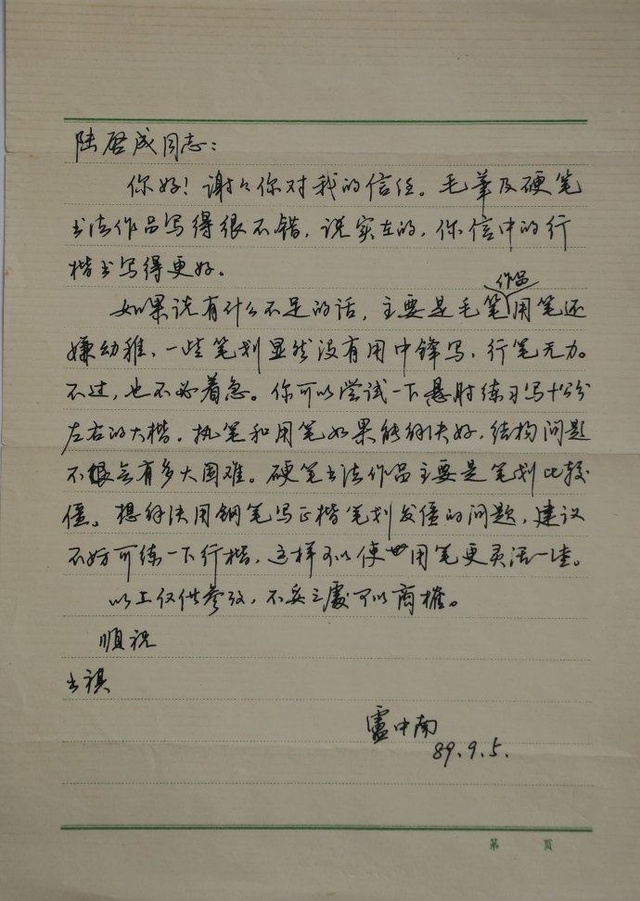 陆启成同志：
你好！谢谢你对我的信任。毛笔及硬笔
书法作品写得很不错，说实在的，你信中的行
楷书写得更好。
作品
如果说有什么不足的话，主要是毛笔用笔还
嫌幼稚，一些笔划显然没有用中锋写，行笔无力。
不过，也不必着急。你可以尝试一下悬肘练习写十公分
左右的大楷。执笔和用笔如果能解决好，结构问题
不会有多大困难。硬笔书法作品主要是笔划比较
僵。想解决用钢笔写正楷笔划发僵的问题，建议
不妨可练一下行楷，这样可以使用笔更灵活一些。
以上仅供参考，不妥之处可以商榷。
顺祝
书祺
卢中南
89.9.5.
第 页